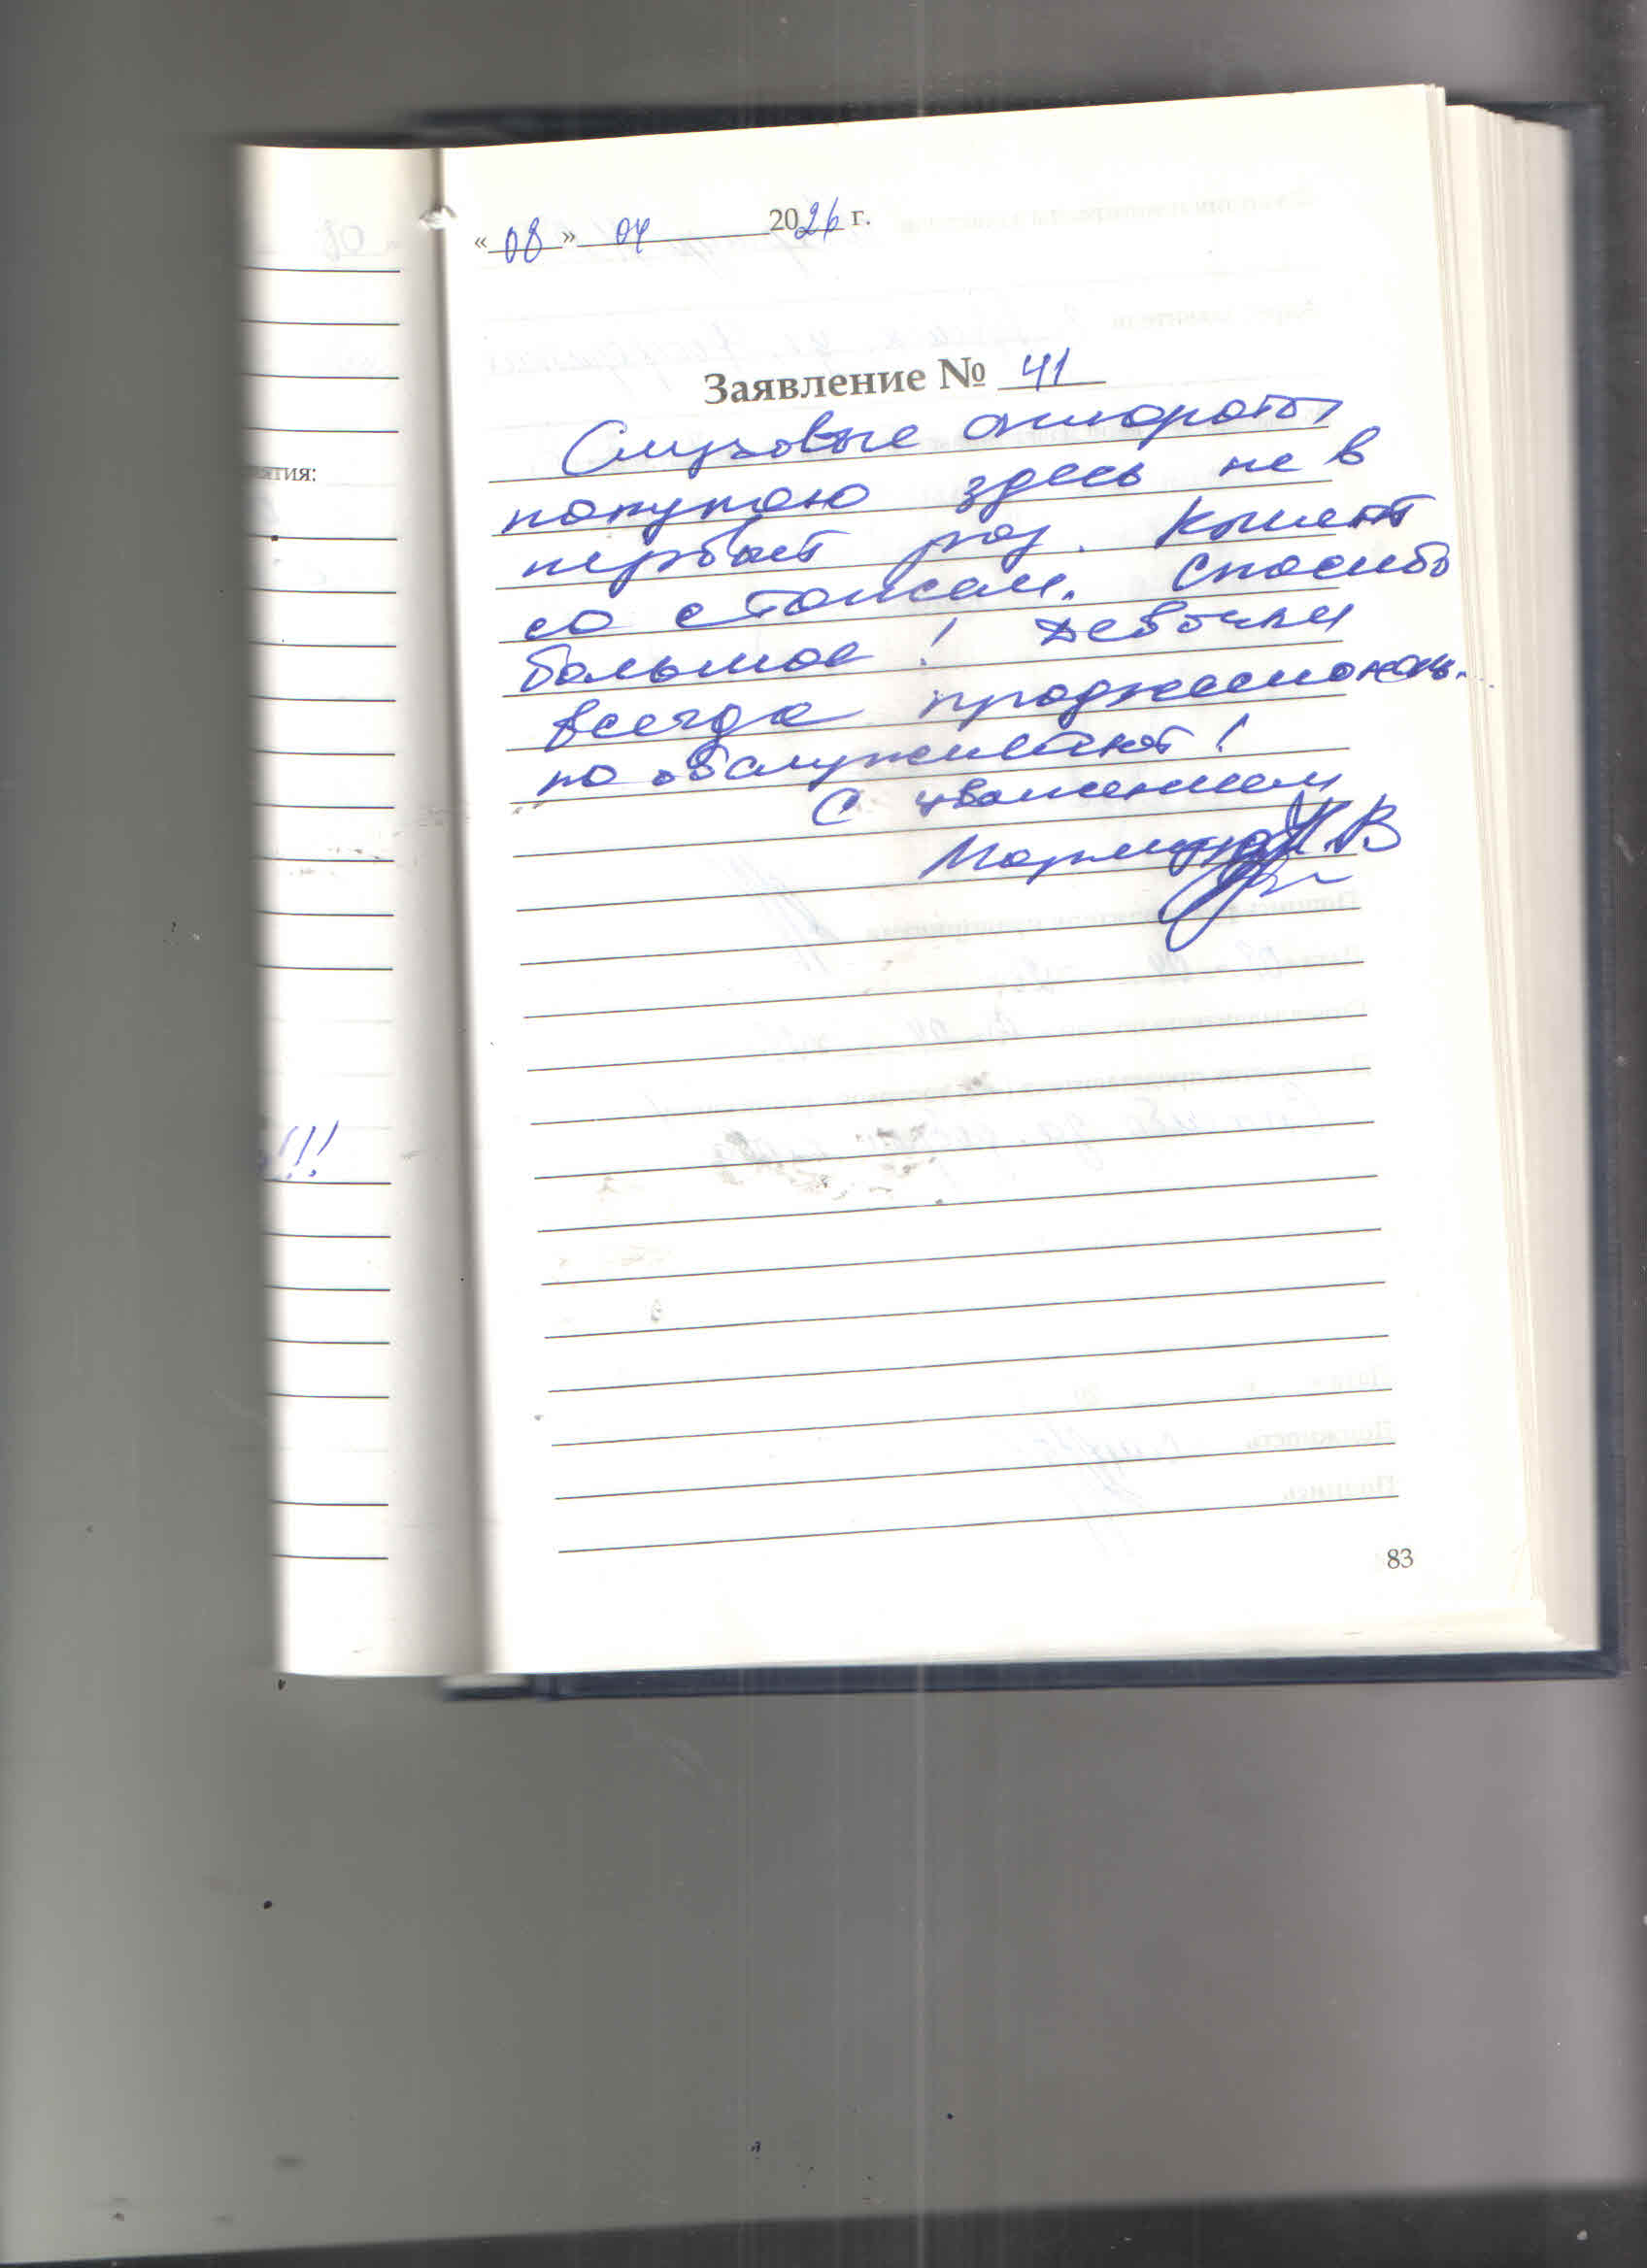 «08» 04 2026 г.
Заявление № 41
Слуховые аппараты
покупаю здесь не в
первый раз. Клиент
со стажем. Спасибо
большое! Девочки
всегда профессиональ.
но обслуживают!
С уважением
Н.В
ятия:
!!!
83